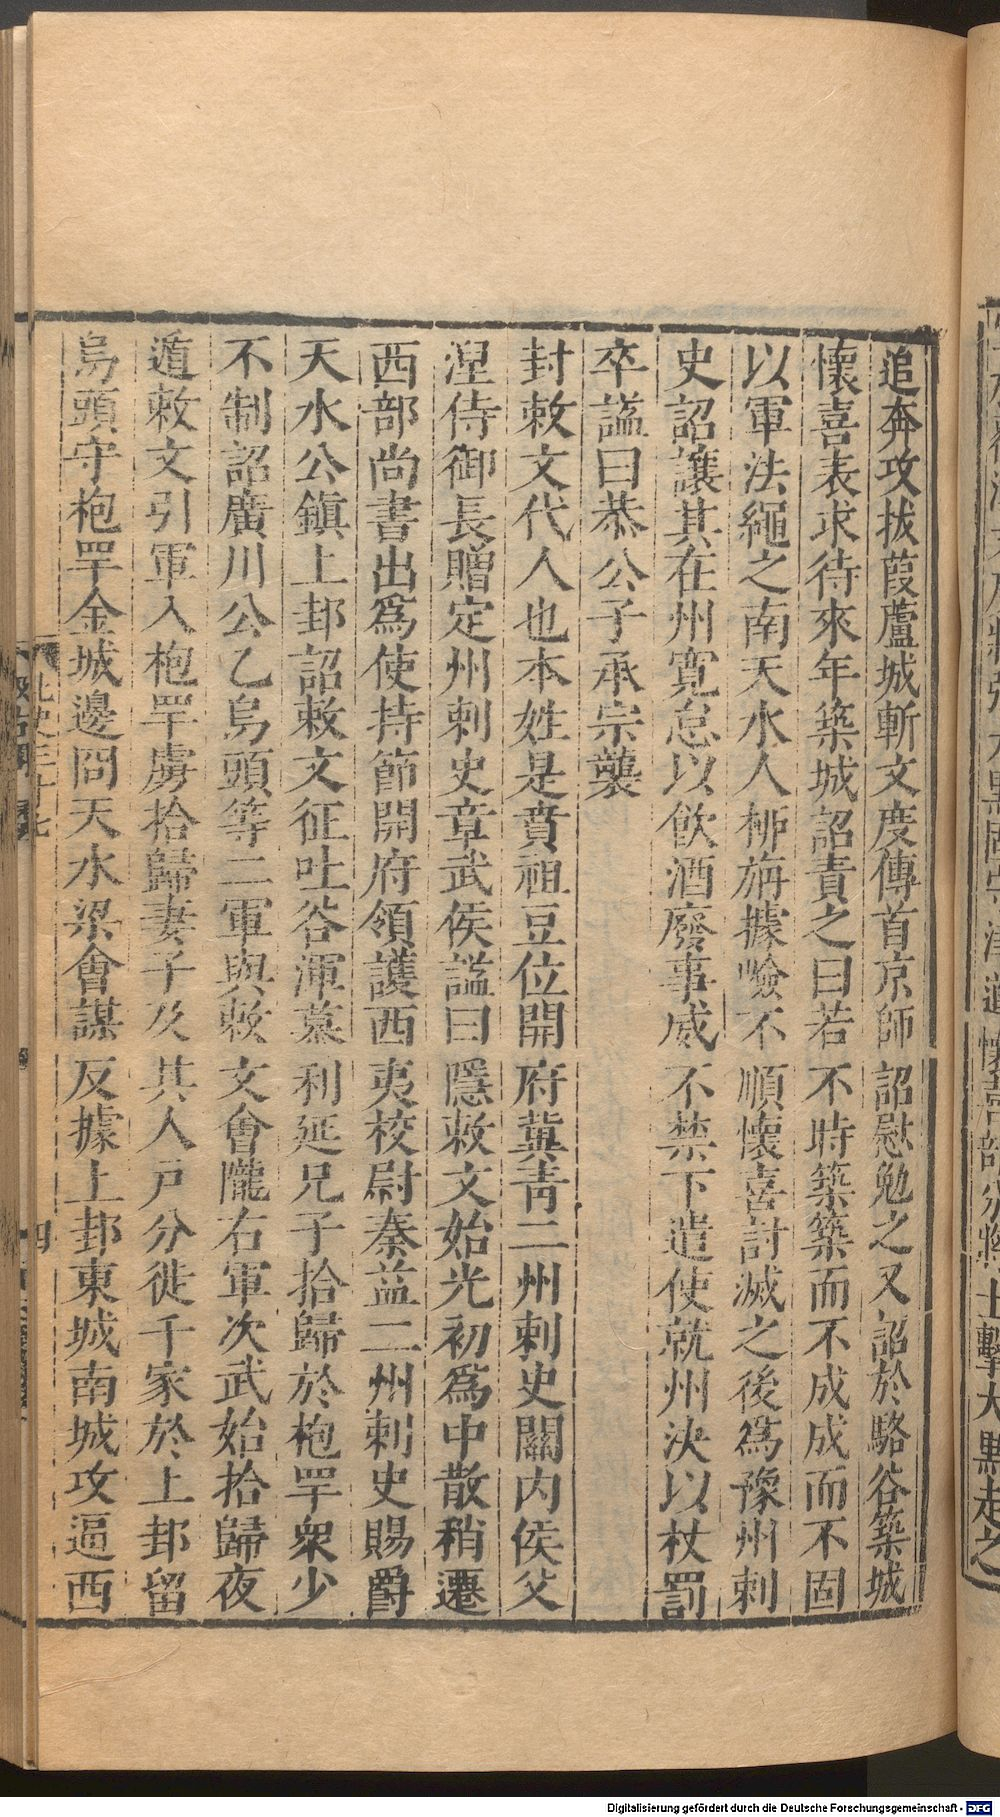 追奔攻拔葭蘆城斬文度傳首京師詔慰勉之又詔於駱谷築城
懷喜表求待來年築城詔責之曰若不時築築而不成成而不固
以軍法繩之南天水人栁旃據嶮不順懷喜討滅之後爲豫州刺
史詔讓其在州寬怠以飲酒廢事威不禁下遣使就州決以杖罰
卒謚曰恭公子承宗襲
封敕文代人也本姓是賁祖豆位開府冀青二州刺史關內侯父
涅侍御長贈定州刺史章武侯謚曰隱敕文始光初爲中散稍遷
西部尚書出爲使持節開府領護西夷校尉秦益二州刺史賜爵
天水公鎮上邽詔敕文征吐谷渾慕利延兄子拾歸於枹罕衆少
不制詔廣川公乙烏頭等二軍與敕文會隴右軍次武始拾歸夜
遁敕文引軍入枹罕虜拾歸妻子及其人戶分徙千家於上邽留
烏頭守枹罕金城邊冏天水梁會謀反據上邽東城南城攻逼西
北史三十七
四
Digitalisierung gefördert durch die Deutsche Forschungsgemeinschaft - DFG